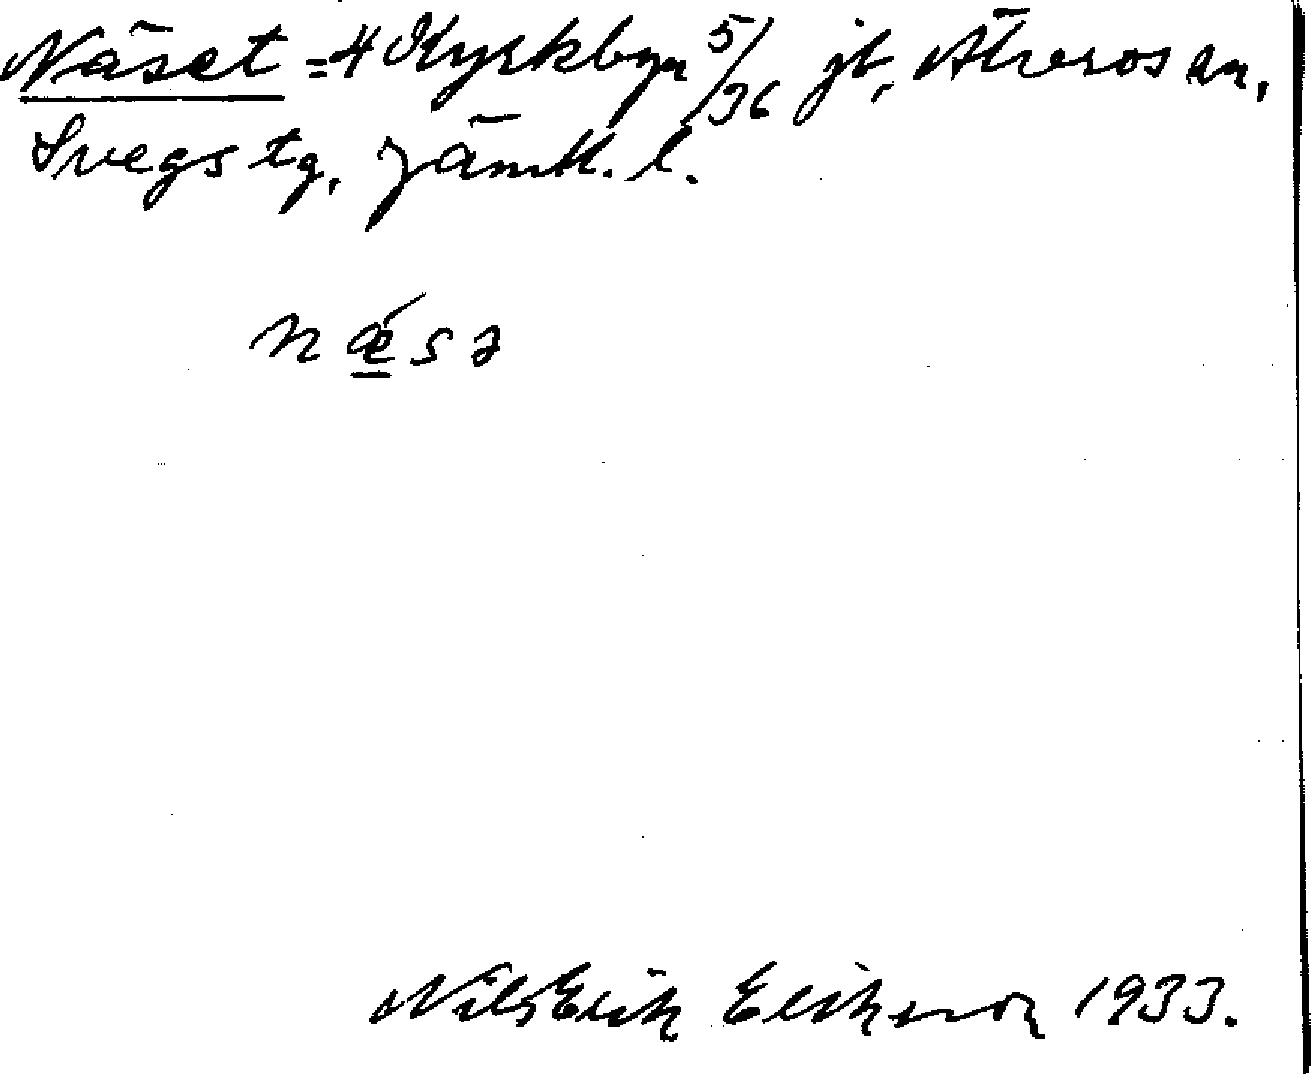 Näset = 4 Kyrkbyn 5/36 jb, Älvros sn,
Svegs tg, Jämtl. l.
nǽ̲sə
Nils Erik Eriksson 1933.